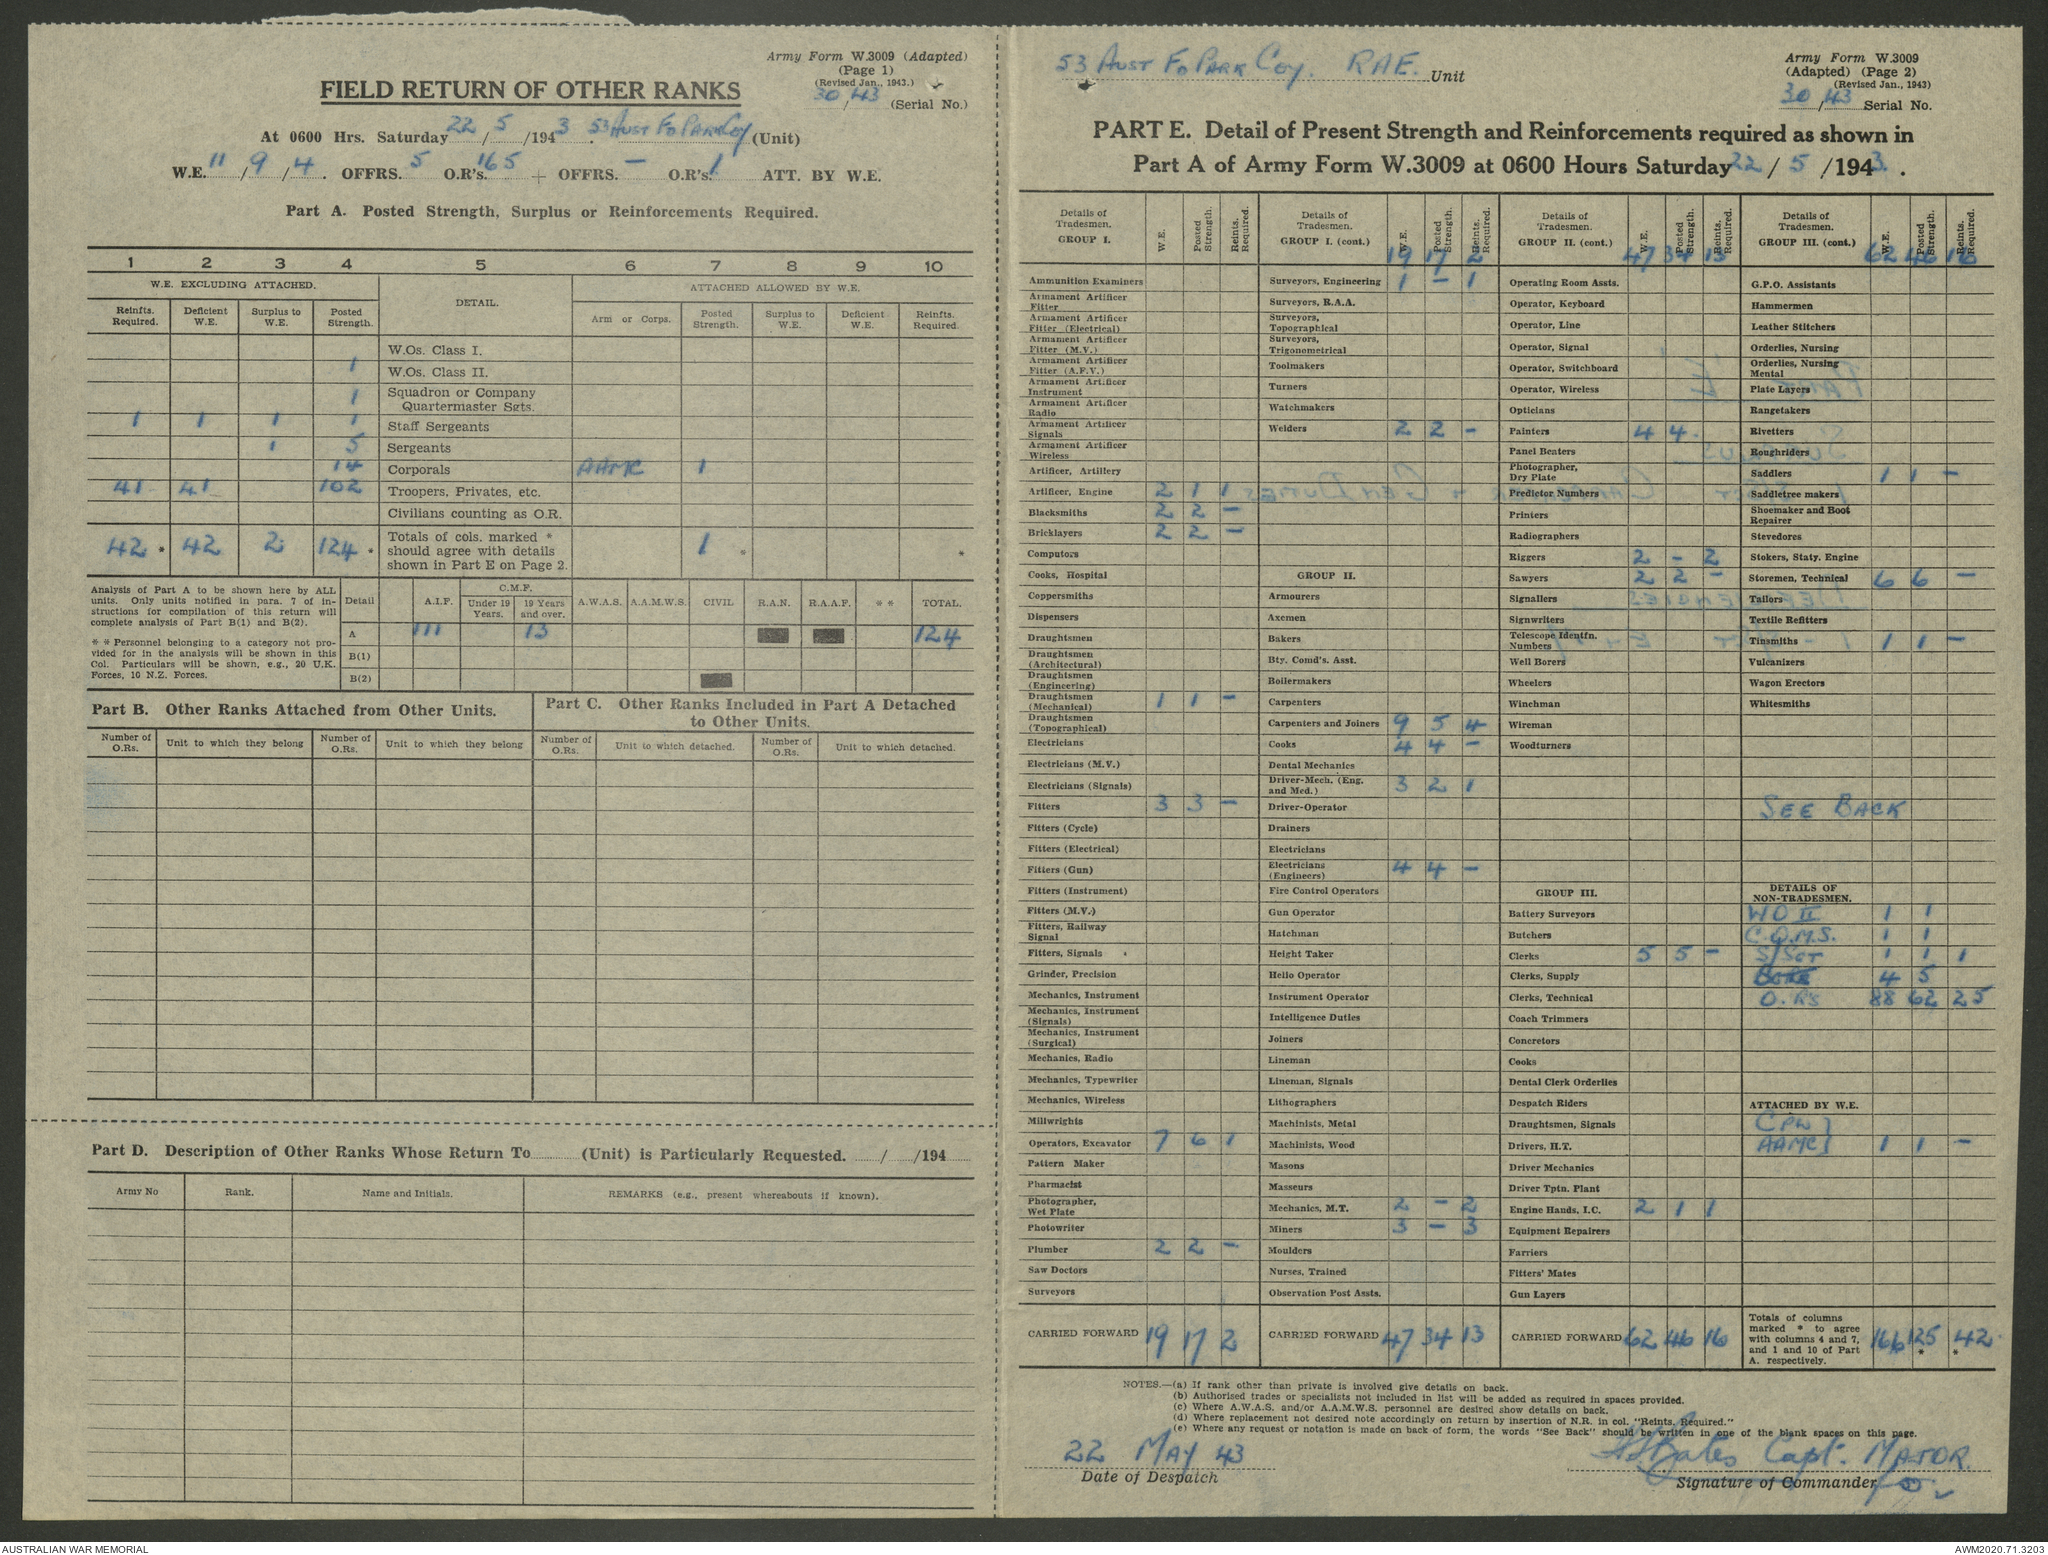 Army Form W.3009 (Adapted)
(Page 1)
(Revised Jan., 1943.)
30 / 43 (Serial No.)
FIELD RETURN OF OTHER RANKS
At 0600 Hrs. Saturday 22 / 5 / 1943. 53 Aust Fd Park Coy (Unit)
W.E. 11 / 9 / 4. OFFRS. 5 O.R's. 165 + OFFRS. — O.R's. 1 ATT. BY W.E.
Part A. Posted Strength, Surplus or Reinforcements Required.
1 2 3 4 5 6 7 8 9 10
W.E. EXCLUDING ATTACHED. DETAIL. ATTACHED ALLOWED BY W.E.
Reinfts. Required. Deficient W.E. Surplus to W.E. Posted Strength. Arm or Corps. Posted Strength. Surplus to W.E. Deficient W.E. Reinfts. Required.
W.Os. Class I.
1 W.Os. Class II.
1 Squadron or Company Quartermaster Sgts.
1 1 1 1 Staff Sergeants
1 5 Sergeants
14 Corporals AAMC 1
41 41 102 Troopers, Privates, etc.
Civilians counting as O.R.
42 * 42 2 124 * Totals of cols. marked * should agree with details shown in Part E on Page 2. 1 * *
Analysis of Part A to be shown here by ALL
units. Only units notified in para. 7 of in-
structions for compilation of this return will
complete analysis of Part B(1) and B(2).
* * Personnel belonging to a category not pro-
vided for in the analysis will be shown in this
Col. Particulars will be shown, e.g., 20 U.K.
Forces, 10 N.Z. Forces.
Detail A.I.F. C.M.F. Under 19 Years. 19 Years and over. A.W.A.S. A.A.M.W.S. CIVIL R.A.N. R.A.A.F. * * TOTAL.
A 111 13 124
B(1)
B(2)
Part B. Other Ranks Attached from Other Units.
Number of O.Rs. Unit to which they belong Number of O.Rs. Unit to which they belong
Part C. Other Ranks Included in Part A Detached
to Other Units.
Number of O.Rs. Unit to which detached. Number of O.Rs. Unit to which detached.
Part D. Description of Other Ranks Whose Return To (Unit) is Particularly Requested. / /194
Army No Rank. Name and Initials. REMARKS (e.g., present whereabouts if known).
53 Aust Fd Park Coy. RAE. Unit
Army Form W.3009
(Adapted) (Page 2)
(Revised Jan., 1943)
30 / 43 Serial No.
PART E. Detail of Present Strength and Reinforcements required as shown in
Part A of Army Form W.3009 at 0600 Hours Saturday 22 / 5 / 1943.
Details of Tradesmen. GROUP I. W.E. Posted Strength. Reints. Required.
Ammunition Examiners
Armament Artificer Fitter
Armament Artificer Fitter (Electrical)
Armament Artificer Fitter (M.V.)
Armament Artificer Fitter (A.F.V.)
Armament Artificer Instrument
Armament Artificer Radio
Armament Artificer Signals
Armament Artificer Wireless
Artificer, Artillery
Artificer, Engine 2 1 1
Blacksmiths 2 2 —
Bricklayers 2 2 —
Computors
Cooks, Hospital
Coppersmiths
Dispensers
Draughtsmen
Draughtsmen (Architectural)
Draughtsmen (Engineering)
Draughtsmen (Mechanical) 1 1 —
Draughtsmen (Topographical)
Electricians
Electricians (M.V.)
Electricians (Signals)
Fitters 3 3 —
Fitters (Cycle)
Fitters (Electrical)
Fitters (Gun)
Fitters (Instrument)
Fitters (M.V.)
Fitters, Railway Signal
Fitters, Signals
Grinder, Precision
Mechanics, Instrument
Mechanics, Instrument (Signals)
Mechanics, Instrument (Surgical)
Mechanics, Radio
Mechanics, Typewriter
Mechanics, Wireless
Millwrights
Operators, Excavator 7 6 1
Pattern Maker
Pharmacist
Photographer, Wet Plate
Photowriter
Plumber 2 2 —
Saw Doctors
Surveyors
CARRIED FORWARD 19 17 2
Details of Tradesmen. GROUP I. (cont.) W.E. Posted Strength. Reints. Required.
19 17 2
Surveyors, Engineering 1 — 1
Surveyors, R.A.A.
Surveyors, Topographical
Surveyors, Trigonometrical
Toolmakers
Turners
Watchmakers
Welders 2 2 —
GROUP II.
Armourers
Axemen
Bakers
Bty. Comd's. Asst.
Boilermakers
Carpenters
Carpenters and Joiners 9 5 4
Cooks 4 4 —
Dental Mechanics
Driver-Mech. (Eng. and Med.) 3 2 1
Driver-Operator
Drainers
Electricians
Electricians (Engineers) 4 4 —
Fire Control Operators
Gun Operator
Hatchman
Height Taker
Helio Operator
Instrument Operator
Intelligence Duties
Joiners
Lineman
Lineman, Signals
Lithographers
Machinists, Metal
Machinists, Wood
Masons
Masseurs
Mechanics, M.T. 2 — 2
Miners 3 — 3
Moulders
Nurses, Trained
Observation Post Assts.
CARRIED FORWARD 47 34 13
Details of Tradesmen. GROUP II. (cont.) W.E. Posted Strength. Reints. Required.
47 34 13
Operating Room Assts.
Operator, Keyboard
Operator, Line
Operator, Signal
Operator, Switchboard
Operator, Wireless
Opticians
Painters 4 4
Panel Beaters
Photographer, Dry Plate
Predictor Numbers
Printers
Radiographers
Riggers 2 — 2
Sawyers 2 2 —
Signallers
Signwriters
Telescope Identfn. Numbers
Well Borers
Wheelers
Winchman
Wireman
Woodturners
GROUP III.
Battery Surveyors
Butchers
Clerks 5 5 —
Clerks, Supply
Clerks, Technical
Coach Trimmers
Concretors
Cooks
Dental Clerk Orderlies
Despatch Riders
Draughtsmen, Signals
Drivers, H.T.
Driver Mechanics
Driver Tptn. Plant
Engine Hands, I.C. 2 1 1
Equipment Repairers
Farriers
Fitters' Mates
Gun Layers
CARRIED FORWARD 62 46 16
Details of Tradesmen. GROUP III. (cont.) W.E. Posted Strength. Reints. Required.
62 46 16
G.P.O. Assistants
Hammermen
Leather Stitchers
Orderlies, Nursing
Orderlies, Nursing Mental
Plate Layers
Rangetakers
Rivetters
Roughriders
Saddlers 1 1 —
Saddletree makers
Shoemaker and Boot Repairer
Stevedores
Stokers, Staty. Engine
Storemen, Technical 6 6 —
Tailors
Textile Refitters
Tinsmiths 1 1 —
Vulcanizers
Wagon Erectors
Whitesmiths
SEE BACK
DETAILS OF NON-TRADESMEN.
WO II 1 1
C.Q.M.S. 1 1
S/Sgt 1 1 1
4 5
O.Rs 88 62 25
ATTACHED BY W.E.
CPL }
AAMC } 1 1 —
Totals of columns marked * to agree with columns 4 and 7, and 1 and 10 of Part A. respectively. 166 125 * 42 *
NOTES.—(a) If rank other than private is involved give details on back.
(b) Authorised trades or specialists not included in list will be added as required in spaces provided.
(c) Where A.W.A.S. and/or A.A.M.W.S. personnel are desired show details on back.
(d) Where replacement not desired note accordingly on return by insertion of N.R. in col. "Reints. Required."
(e) Where any request or notation is made on back of form, the words "See Back" should be written in one of the blank spaces on this page.
22 MAY 43
Date of Despatch
Bates Capt. MAJOR.
Signature of Commander
AUSTRALIAN WAR MEMORIAL
AWM2020.71.3203